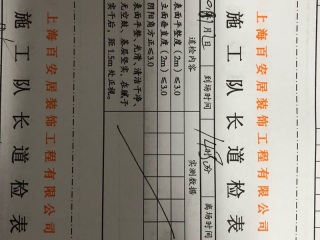 上海百安居装饰工程有限公司
施工队长道检表
月 日 到场时间 14时 分 离场时间
道检内容 实测数据
表面平整度（2m）≤3.0
立面垂直度（2m）≤3.0
阴阳角方正≤3.0
表面平整、光滑、清洁干净、
无空鼓、基层坚实，在腻子
实干后，距1.5m处正视。
上海百安居装饰工程有限公司
施工队长道检表